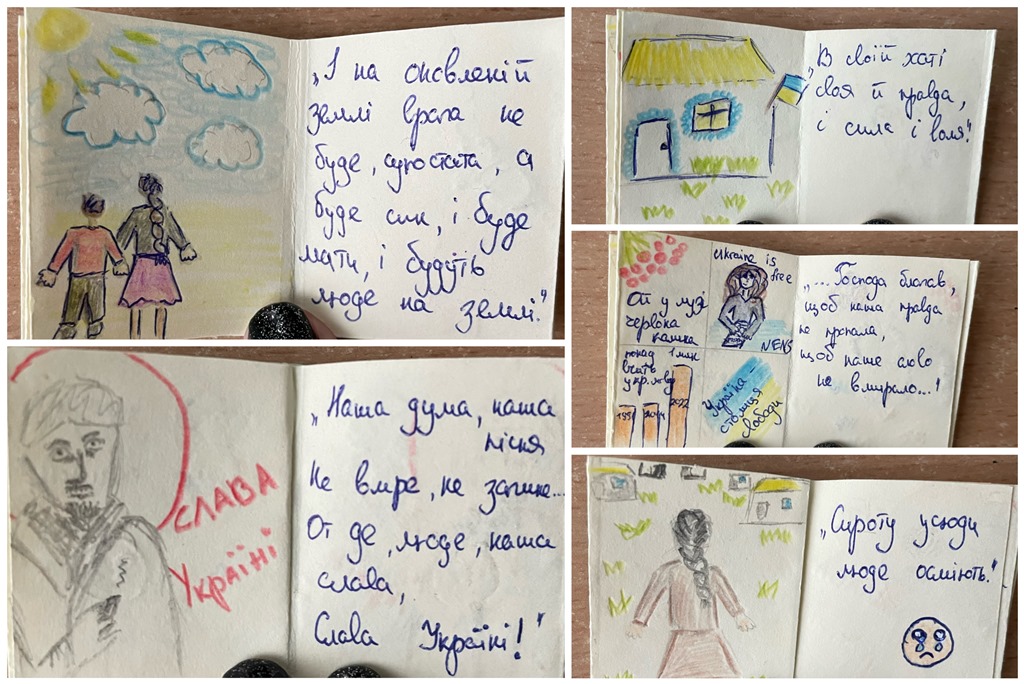 „І на оновленій
землі врага не
буде, супостата, а
буде син, і буде
мати, і будуть
люде на землі."
СЛАВА
Україні
„Наша дума, наша
пісня
Не вмре, не загине...
От де, люде, наша
слава,
Слава Україні!"
„В своїй хаті
своя й правда,
і сила і воля."
Ой у лузі
червона
калина
Ukraine is
free
понад 1 млн
вчить
укр. мову
2022
Україна –
столиця
свободи
„...Господа благав,
щоб наша правда
не пропала,
щоб наше слово
не вмирало...!
„Сироту усюди
люде осміють."